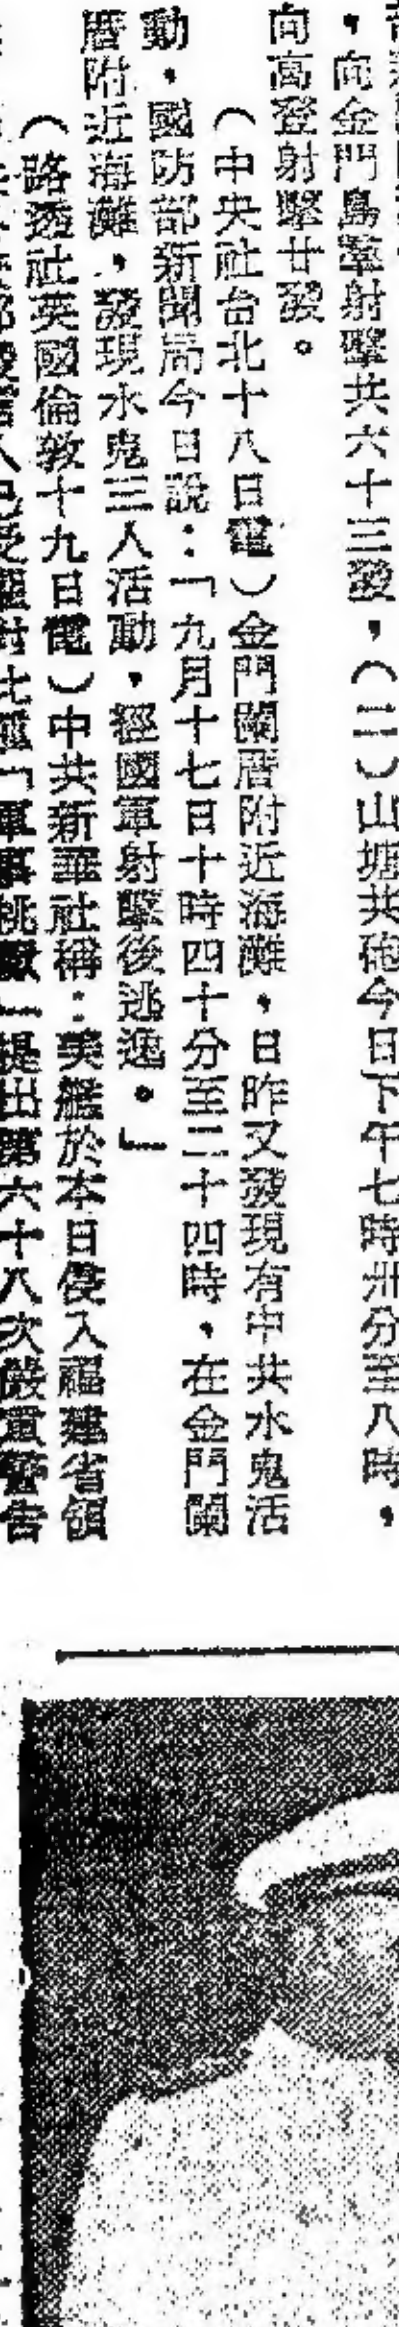 ，向金門島羣射擊共六十三發，（二）山塘共砲今日下午七時卅分至八時，
向高登射擊廿發。
（中央社台北十八日電）金門關厝附近海灘，日昨又發現有中共水鬼活
動，國防部新聞局今日說：「九月十七日十時四十分至二十四時，在金門關
厝附近海灘，發現水鬼三人活動，經國軍射擊後逃逸。」
（路透社英國倫敦十九日電）中共新華社稱：美艦於本日侵入福建省領
人已受權對此種「軍事挑釁」提出第六十八次嚴重警告